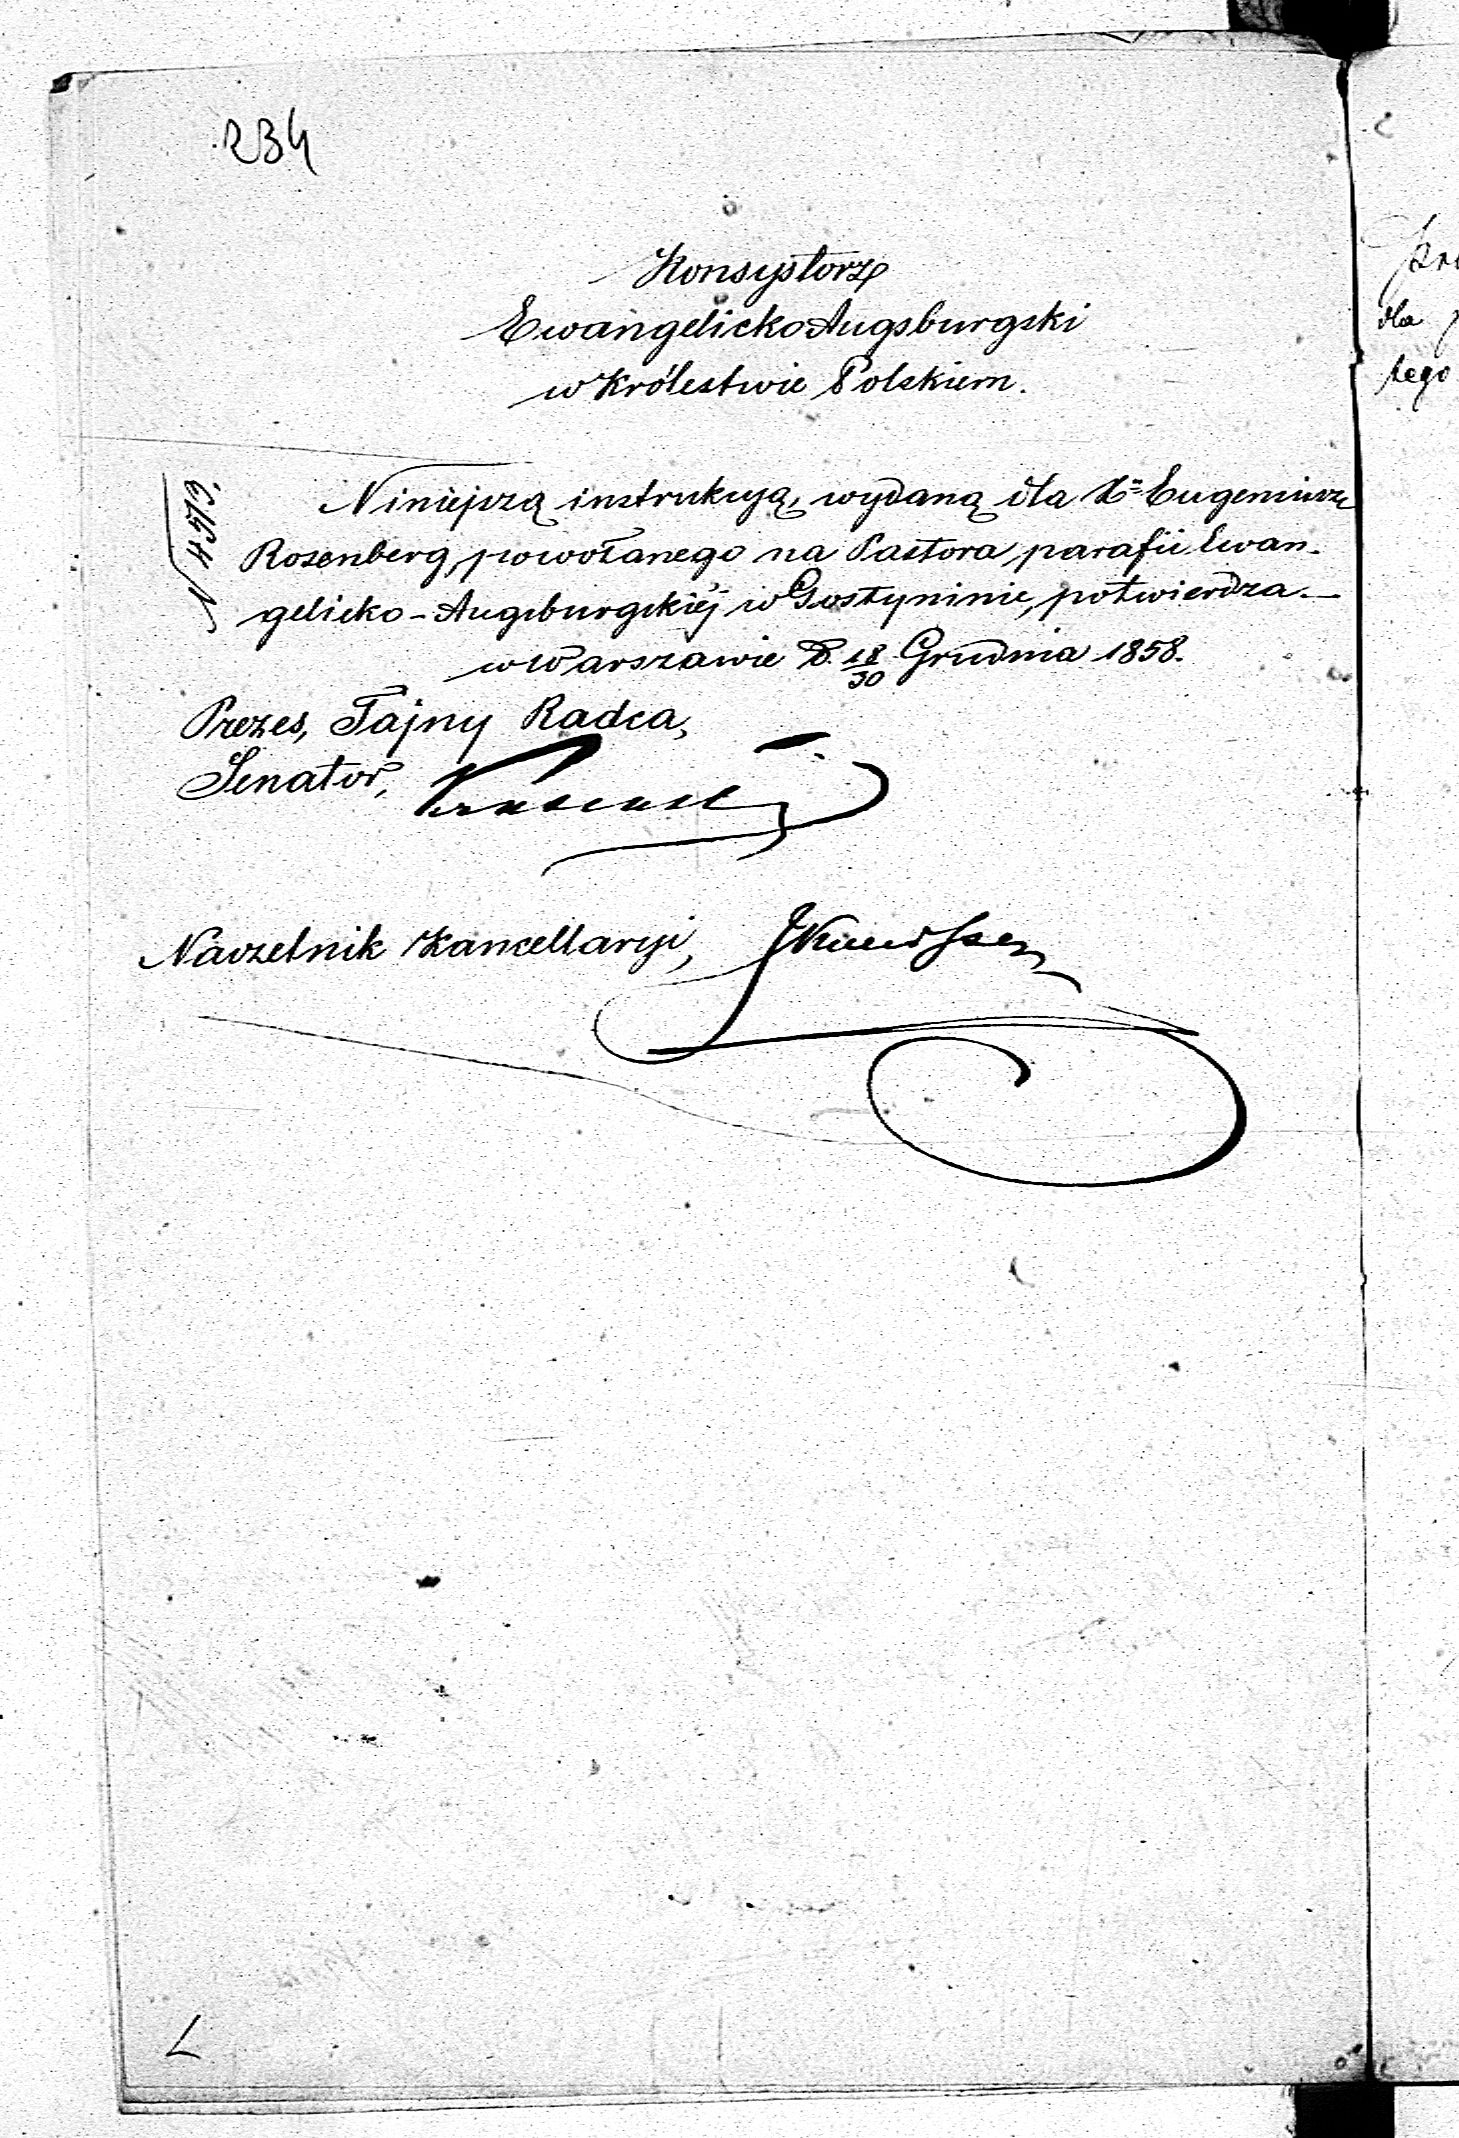 234
Konsystorz
Ewangelicko Augsburgski
w Królestwie Polskiem.
N 4573.
Niniejszą instrukcją, wydaną dla X. Eugeniusza
Rosenberg, powołanego na Pastora parafii Ewan-
gelicko-Augsburgskiéj w Gostyninie, potwierdza.—
w Warszawie D. 18/30 Grudnia 1858.
Prezes, Tajny Radca,
Senator,
Naczelnik Kancellaryi,
dla
tego